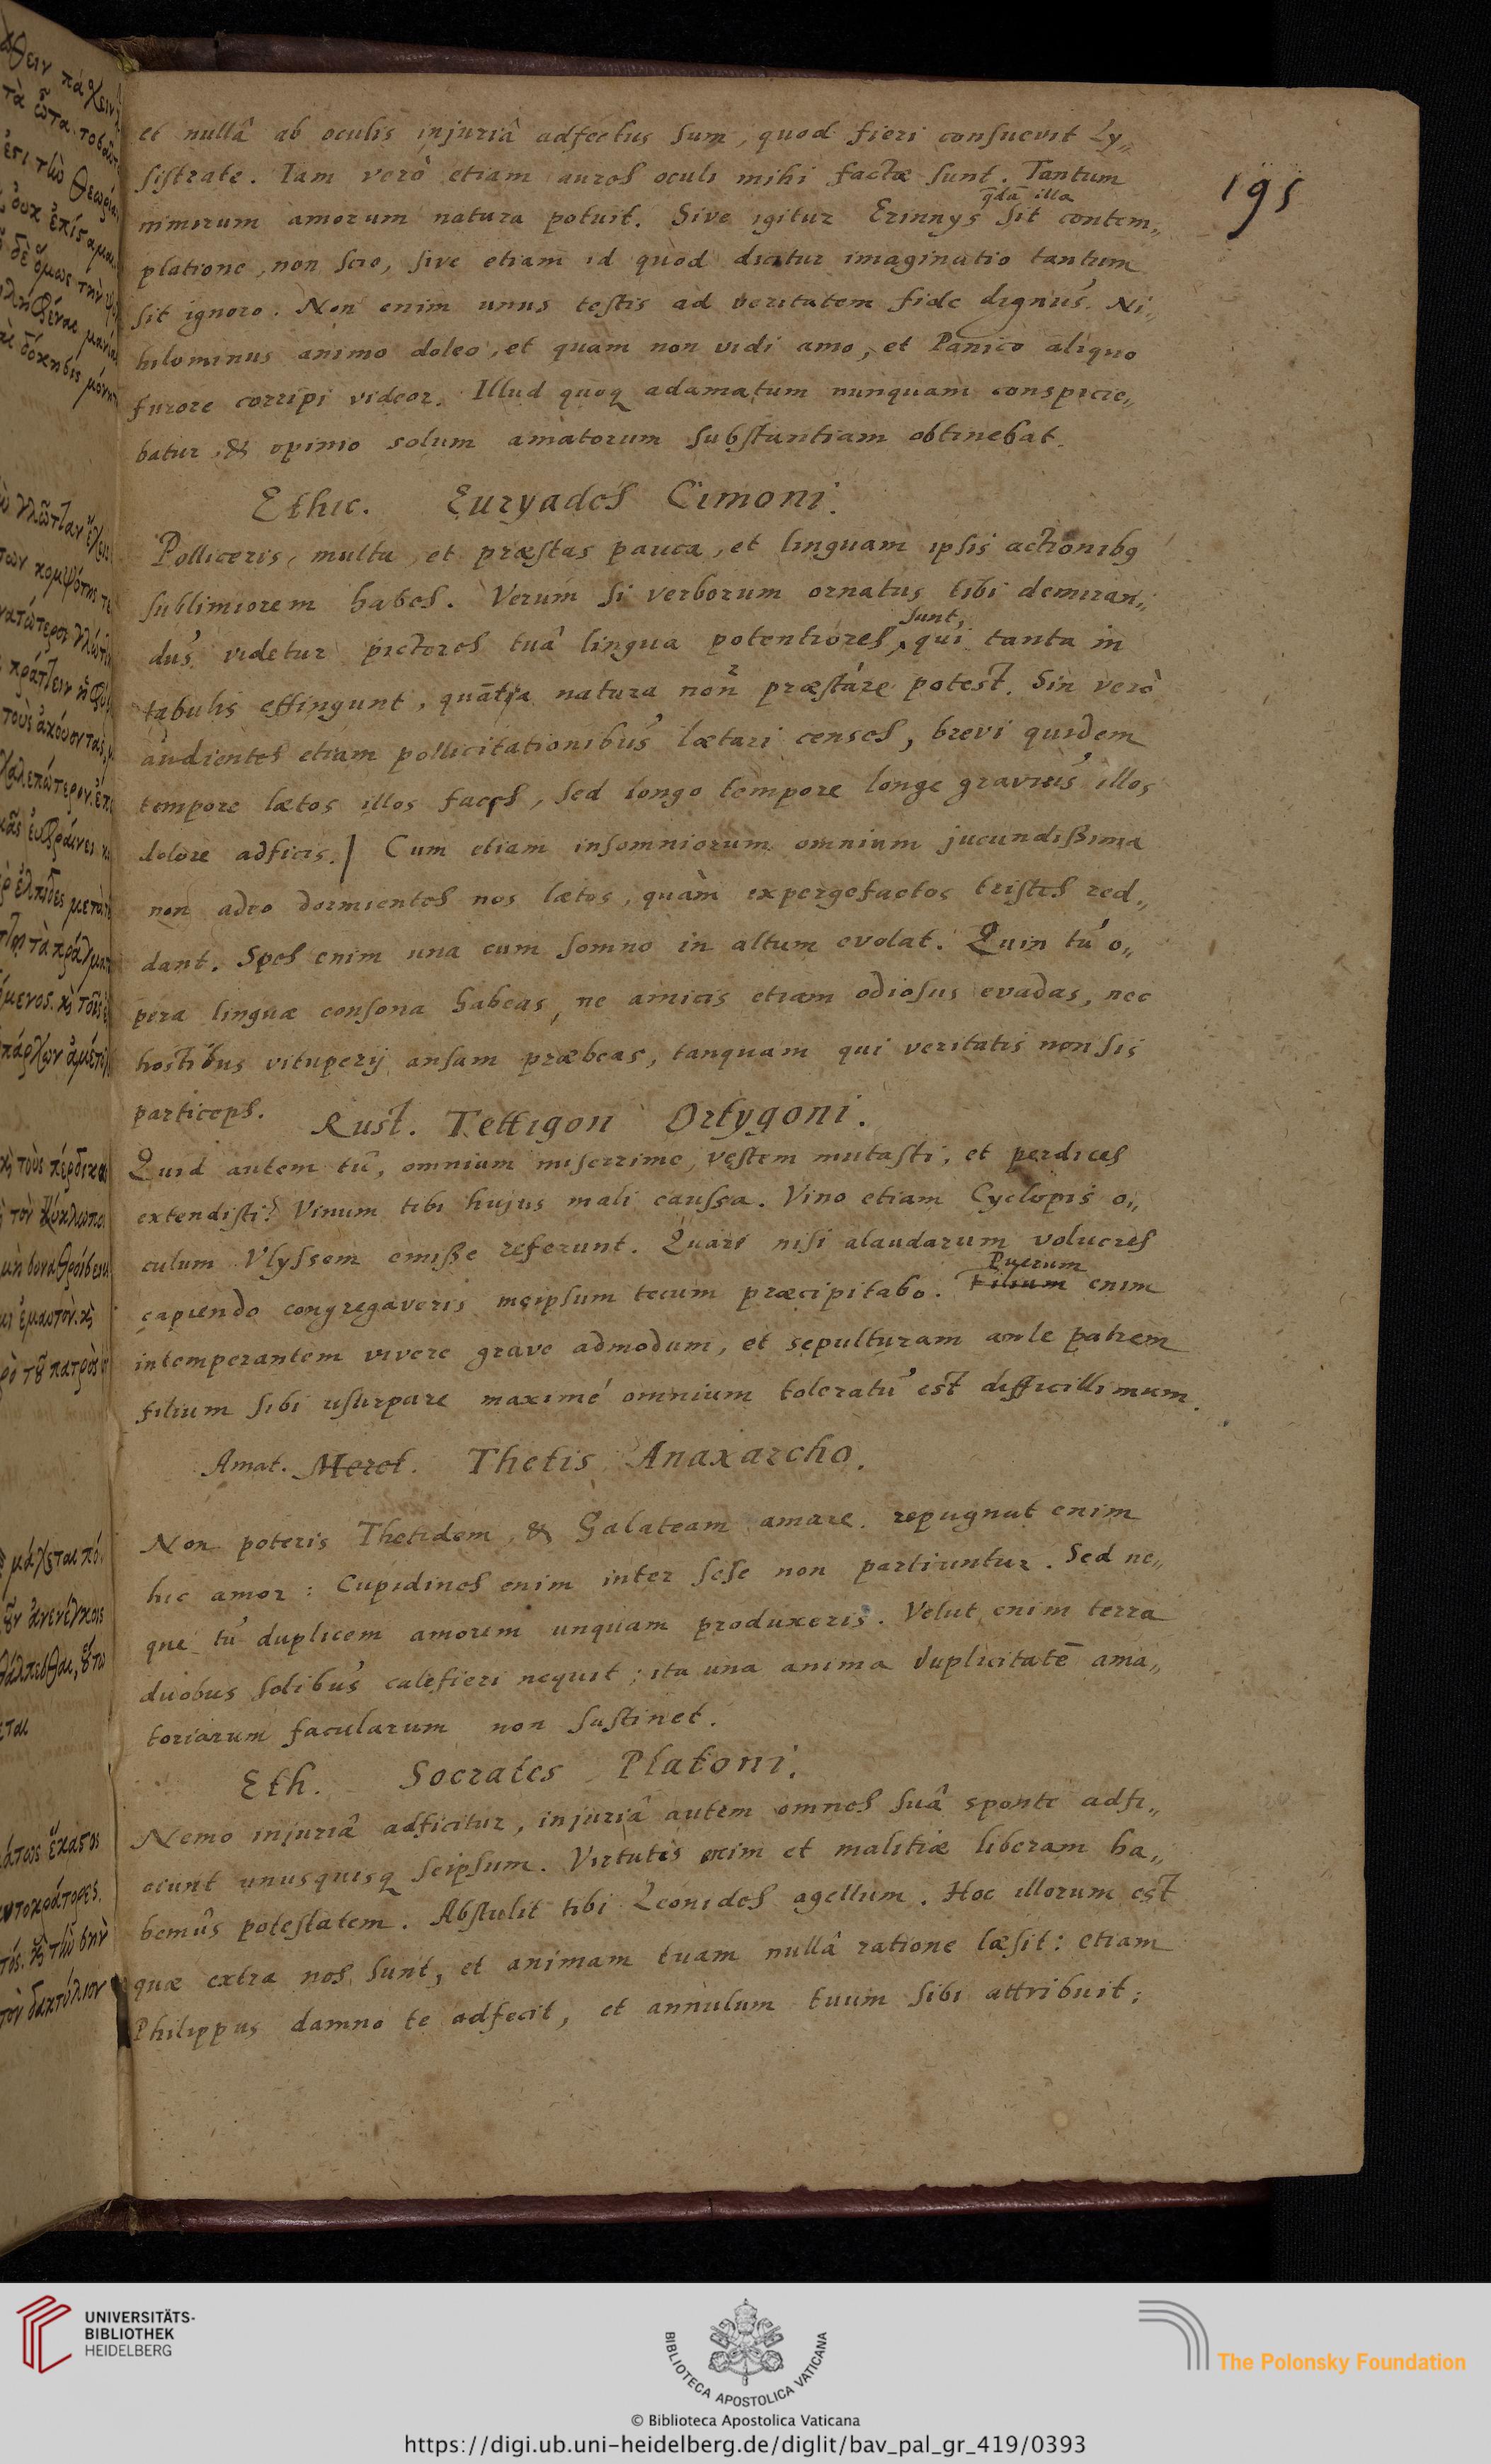 et nullâ ab oculis injuriâ adfectus sum, quod fieri consuevit Ly„
sistrate. Iam verò etiam aures oculi mihi factæ sunt. Tantum
195
q̄dā illa
nimirum amorum natura potuit. Sive igitur Erinnys sit contem„
platione, non scio, sive etiam id quòd dicitur imaginatio tantum
sit ignoro. Non enim unus testis ad veritatem fide dignus. Ni„
hilominus animo doleo, et quam non vidi amo, et Panico aliquo
furore corripi videor. Illud quoq adamatum nunquam conspicie„
batur, & opinio solum amatorum substantiam obtinebat.
Ethic. Euryades Cimoni.
Polliceris, multa, et præstas pauca, et linguam ipsis actionibq
sublimiorem habes. Verum si verborum ornatus tibi demiran„
sunt,
dus videtur pictores tuâ lingua potentiores, qui tanta in
tabulis effingunt, quātia natura non præstare potest. Sin verò
audientes etiam pollicitationibus lætari censes, brevi quidem
tempore lætos illos faces, sed longo tempore longe gravius illos
dolore adficis.] Cum etiam insomniorum omnium jucundissima
non adeo dormientes nos lætos, quàm expergefactos tristes red„
dant. Spes enim una cum somno in altum evolat. Quin tu o„
pera linguæ consona habeas, ne amicis etiam odiosus evadas, nec
hostibus vituperij ansam præbeas, tanquam qui veritatis non sis
particeps.
Rust. Tettigon Ortygoni.
Quid autem tu, omnium miserrime, vestem mutasti, et perdices
extendisti? Vinum tibi hujus mali caussa. Vino etiam Cyclopis o„
culum Vlyssem emisse referunt. Quare nisi alaudarum volucres
Puerum
capiendo congregaveris meipsum tecum præcipitabo. Filium enim
intemperantem vivere grave admodum, et sepulturam ante patrem
filium sibi usurpare maximé omnium toleratu est difficillimum.
Amat. Meret. Thetis Anaxarcho.
Non poteris Thetidem & Galateam amare. repugnat enim
hic amor: Cupidines enim inter sese non partiuntur. Sed ne„
que tu duplicem amorem unquam produxeris. Velut enim terra
duobus solibus calefieri nequit; ita una anima duplicitatē ama„
toriarum facularum non sustinet.
Eth. Socrates Platoni.
Nemo injuriâ adficitur, injuriâ autem omnes suâ sponte adfi„
ciunt unusquisq seipsum. Virtutis enim et malitiæ liberam ha„
bemus potestatem. Abstulit tibi Leonides agellum. Hoc illorum est
quæ extra nos sunt, et animam tuam nullâ ratione læsit: etiam
Philippus damno te adfecit, et annulum tuum sibi attribuit;
UNIVERSITÄTS-
BIBLIOTHEK
HEIDELBERG
BIBLIOTECA APOSTOLICA VATICANA
The Polonsky Foundation
© Biblioteca Apostolica Vaticana
https://digi.ub.uni-heidelberg.de/diglit/bav_pal_gr_419/0393